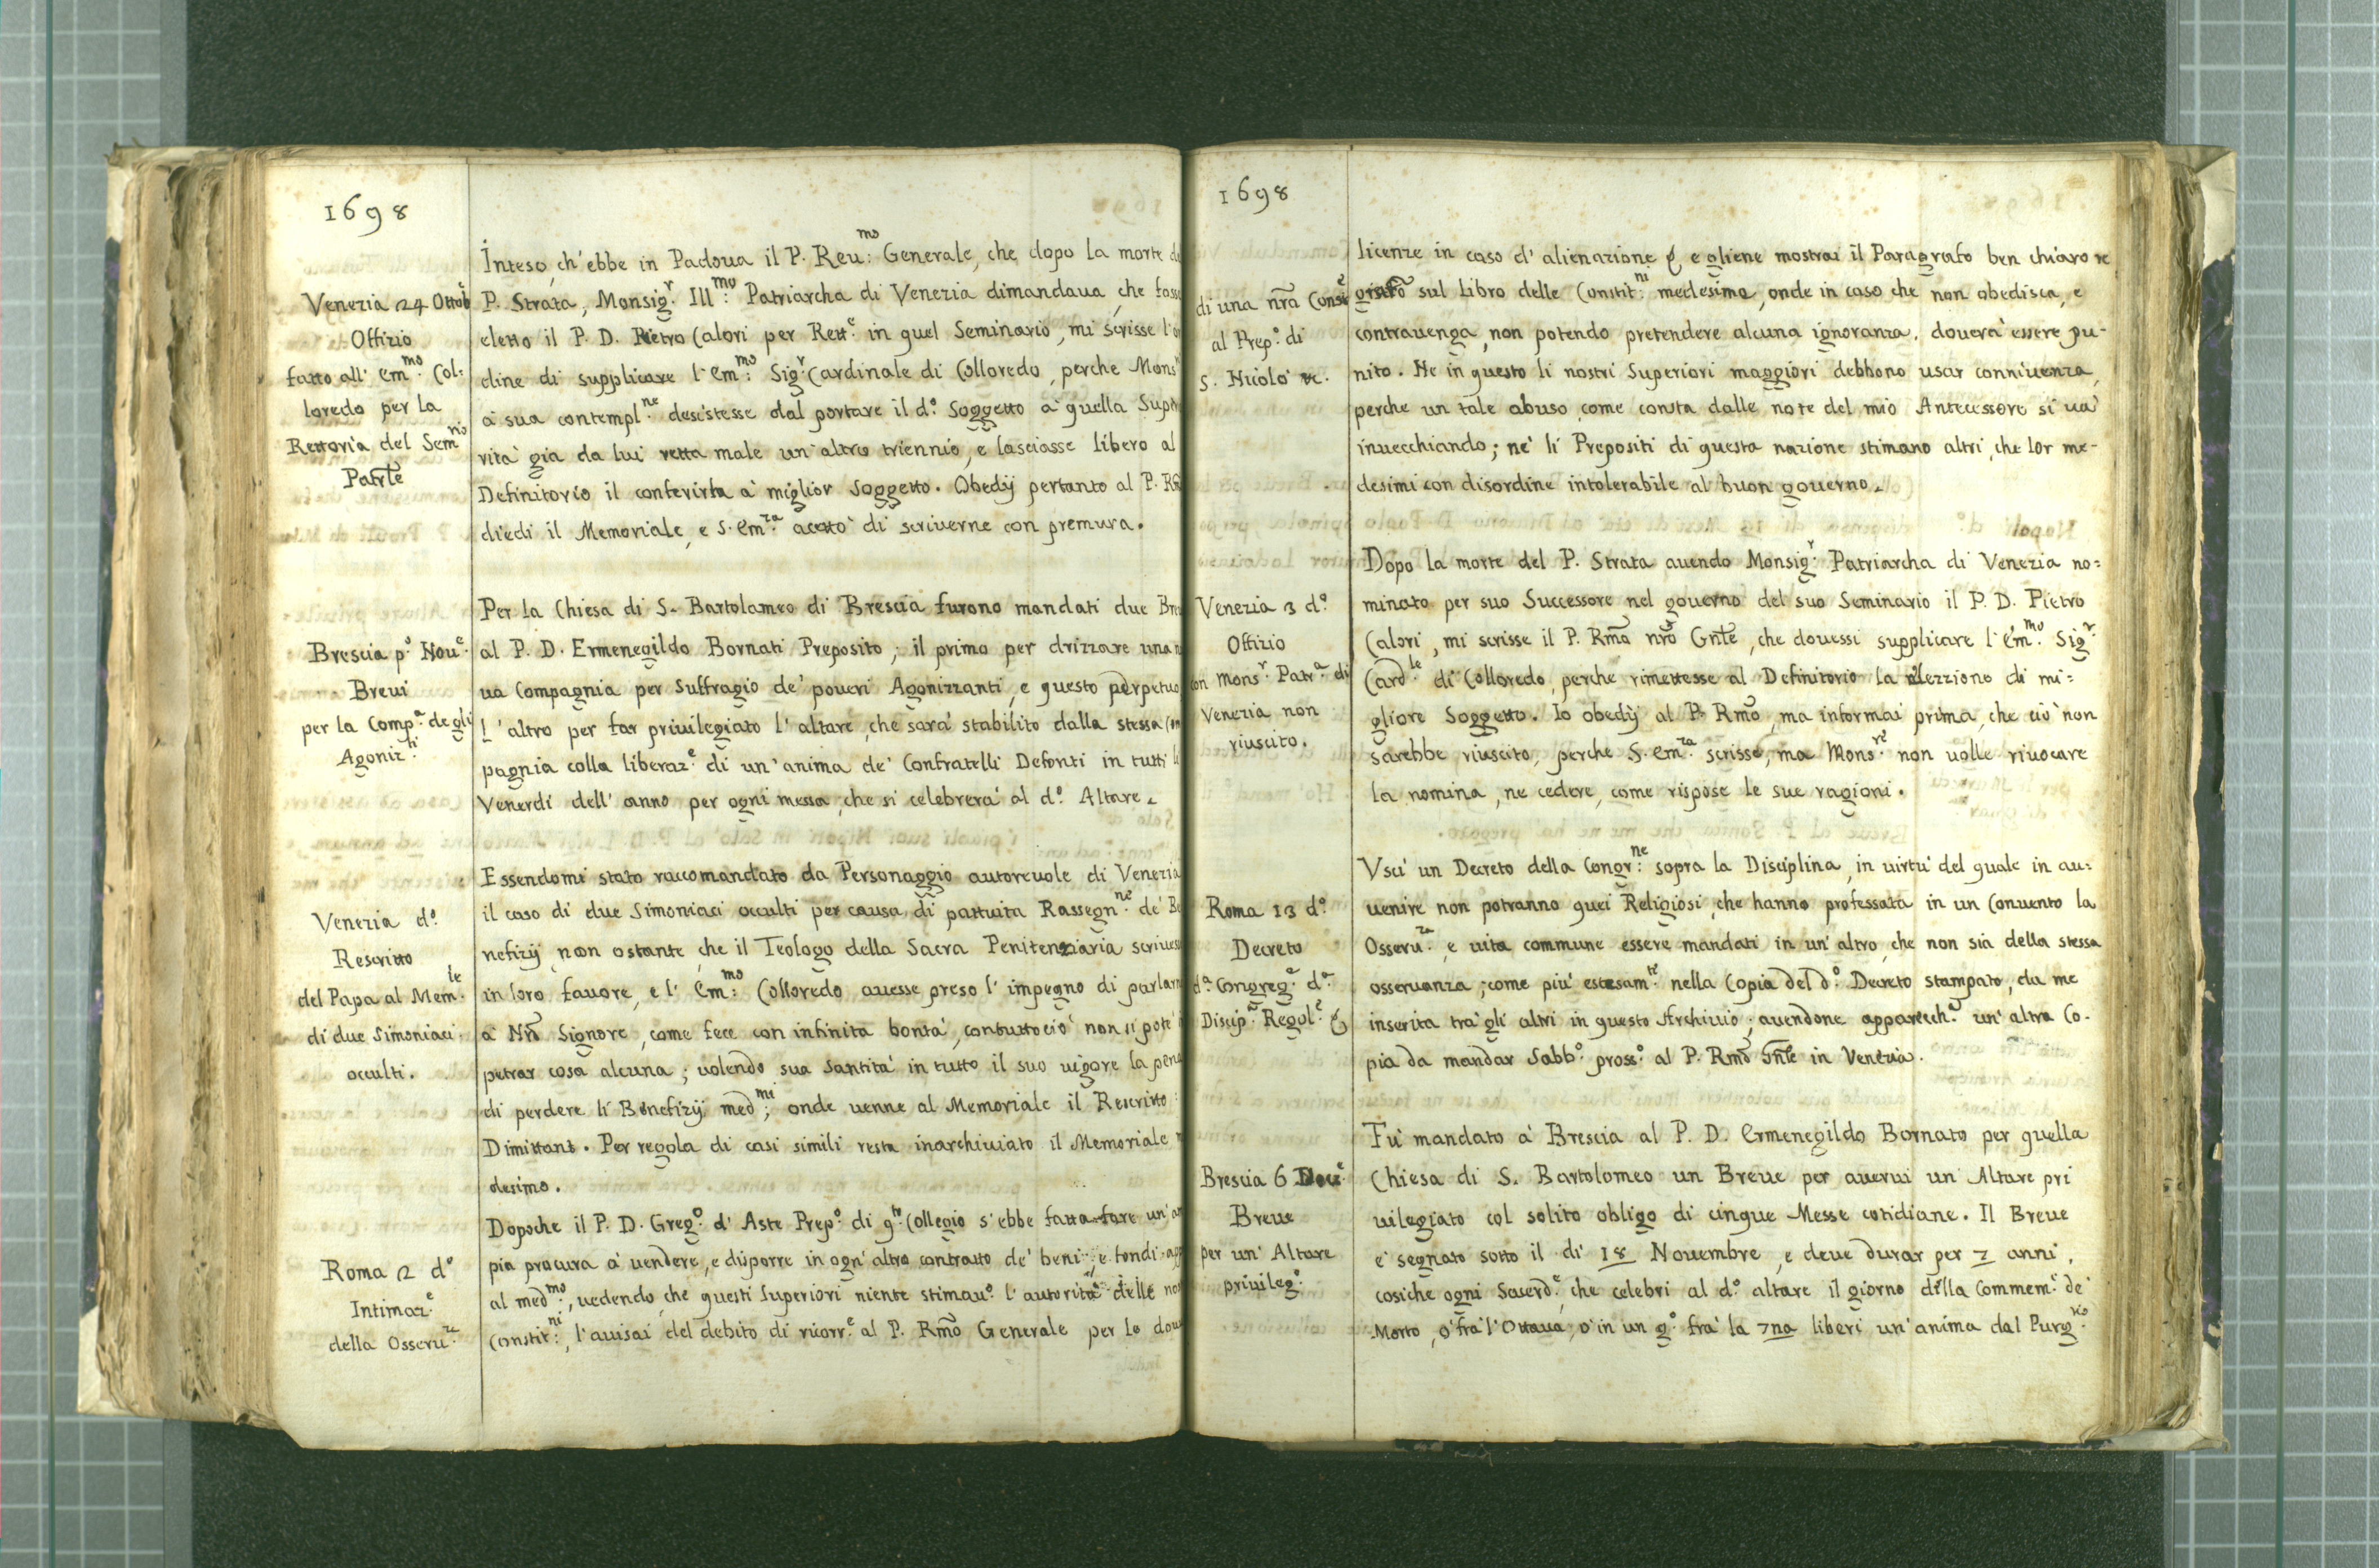 1698
Venezia 24 Ottob.e
Offizio
fatto all' Em.mo Col:
loredo per la
Rettoria del Sem.rio
Patrle
Inteso ch'ebbe in Padoua il P. Reu:mo Generale, che dopo la morte
P. Strata, Monsig.r Ill:mo Patriarcha di Venezia dimandaua, che
eletto il P. D. Pietro Calori per Rett.e in quel Seminario, mi scrisse
dine di supplicare l'Em:mo Sig.r Cardinale di Colloredo, perche Mons
à sua contempl.ne desistesse dal portare il d.o Soggetto à quella
rità gia da lui retta male un altro triennio, e lasciasse libero al
Definitorio il conferirla à miglior soggetto. Obedij pertanto al P.
diedi il Memoriale, e S. Em.za accettò di scriverne con premura.
Brescia p.o Nou.e
Breui
per la Comp.a degli
Agoniz.ti
Per la Chiesa di S. Bartolameo di Brescia furono mandati due
al P. D. Ermenegildo Bornati Preposito; il primo per drizzare una
ua Compagnia per Suffragio de' poueri Agonizzanti, e questo perpetuo
l'altro per far priuilegiato l'altare, che sarà stabilito dalla stessa
pagnia colla liberaz.e di un'anima de' Confratelli Defonti in tutti
Venerdi dell'anno per ogni messa, che si celebrerà al d.o Altare.
Venezia d.o
Rescritto
del Papa al Mem.le
di due Simoniaci
occulti.
Essendomi stato raccomandato da Personaggio autoreuole di Venezia
il caso di due Simoniaci occulti per causa di pattuita Rassegn.ne de' Be
nefizij, non ostante, che il Teologo della Sacra Penitenziaria
in loro fauore, e l'Em:mo Colloredo auesse preso l'impegno di
à Nro Signore, come fece con infinita bontà, contuttociò non si potè
petrar cosa alcuna; uolendo sua Santità in tutto il suo uigore la
di perdere li Benefizij med:mi; onde uenne al Memoriale il Rescritto
Dimittant. Per regola di casi simili resta inarchiuiato il Memoriale
desimo.
Roma 12 d.o
Intimaz.e
della Osseru.za
Dopoche il P. D. Greg.o d'Aste Prep.o di q.to Collegio s'ebbe fatta fare
pia procura à uendere, e disporre in ogn'altro contratto de' beni, e fondi
al med:mo, uedendo, che questi Superiori niente stimau.o l'autorità delle
Constit:ni, l'auisai del debito di ricorr.e al P. Rmo Generale per le
1698
di una nra
al Prep.o di
S. Nicolò &c.
licenze in caso d'alienazione & e gliene mostrai il Paragrafo ben chiaro
sul Libro delle Constit:ni medesime, onde in caso che non obedisca, e
contrauenga, non potendo pretendere alcuna ignoranza, douerà essere pu-
nito. Ne in questo li nostri Superiori maggiori debbono usar conniuenza,
perche un tale abuso, come consta dalle note del mio Antecessore si uà
inuecchiando; nè li Prepositi di questa nazione stimano altri, che lor me-
desimi con disordine intolerabile al buon gouerno.
Venezia 3 d.o
Offizio
con Mons.r Patr.a di
Venezia non
riuscito.
Dopo la morte del P. Strata auendo Monsig.r Patriarcha di Venezia no=
minato per suo Successore nel gouerno del suo Seminario il P. D. Pietro
Calori, mi scrisse il P. Rmo nro Gnle, che douessi supplicare l'Em.mo Sig.r
Card.le di Colloredo, perche rimettesse al Definitorio la elezzione di mi=
gliore Soggetto. Io obedij al P. Rmo, ma informai prima, che ciò non
sarebbe riuscito, perche S. Em.za scrisse, ma Mons.re non uolle riuocare
la nomina, ne cedere, come rispose le sue ragioni.
Roma 13 d.o
Decreto
d.a Congreg.e d.a
Discip.a Regol.e &
Vscì un Decreto della Congr:ne sopra la Disciplina, in uirtù del quale in au=
uenire non potranno quei Religiosi, che hanno professata in un Conuento la
Osseru.za, e uita commune essere mandati in un'altro, che non sia della stessa
osseruanza; come più estesam.te nella Copia del d.o Decreto stampato, da me
inserita trà gli altri in questo Archiuio; auendone apparecch.a un'altra Co-
pia da mandar Sabb.o pross.o al P. Rmo Gnle in Venezia.
Brescia 6
Breue
per un'Altare
priuileg.o
Fù mandato à Brescia al P. D. Ermenegildo Bornato per quella
Chiesa di S. Bartolomeo un Breue per auerui un'Altare pri
uilegiato col solito obligo di cinque Messe cotidiane. Il Breue
e' segnato sotto il di 18 Nouembre, e deue durar per 7 anni,
cosiche ogni Sacerd.e, che celebri al d.o altare il giorno della Commem.e de'
Morto, ò frà l'Ottaua, ò in un g.o frà la 7na liberi un'anima dal Purg.rio